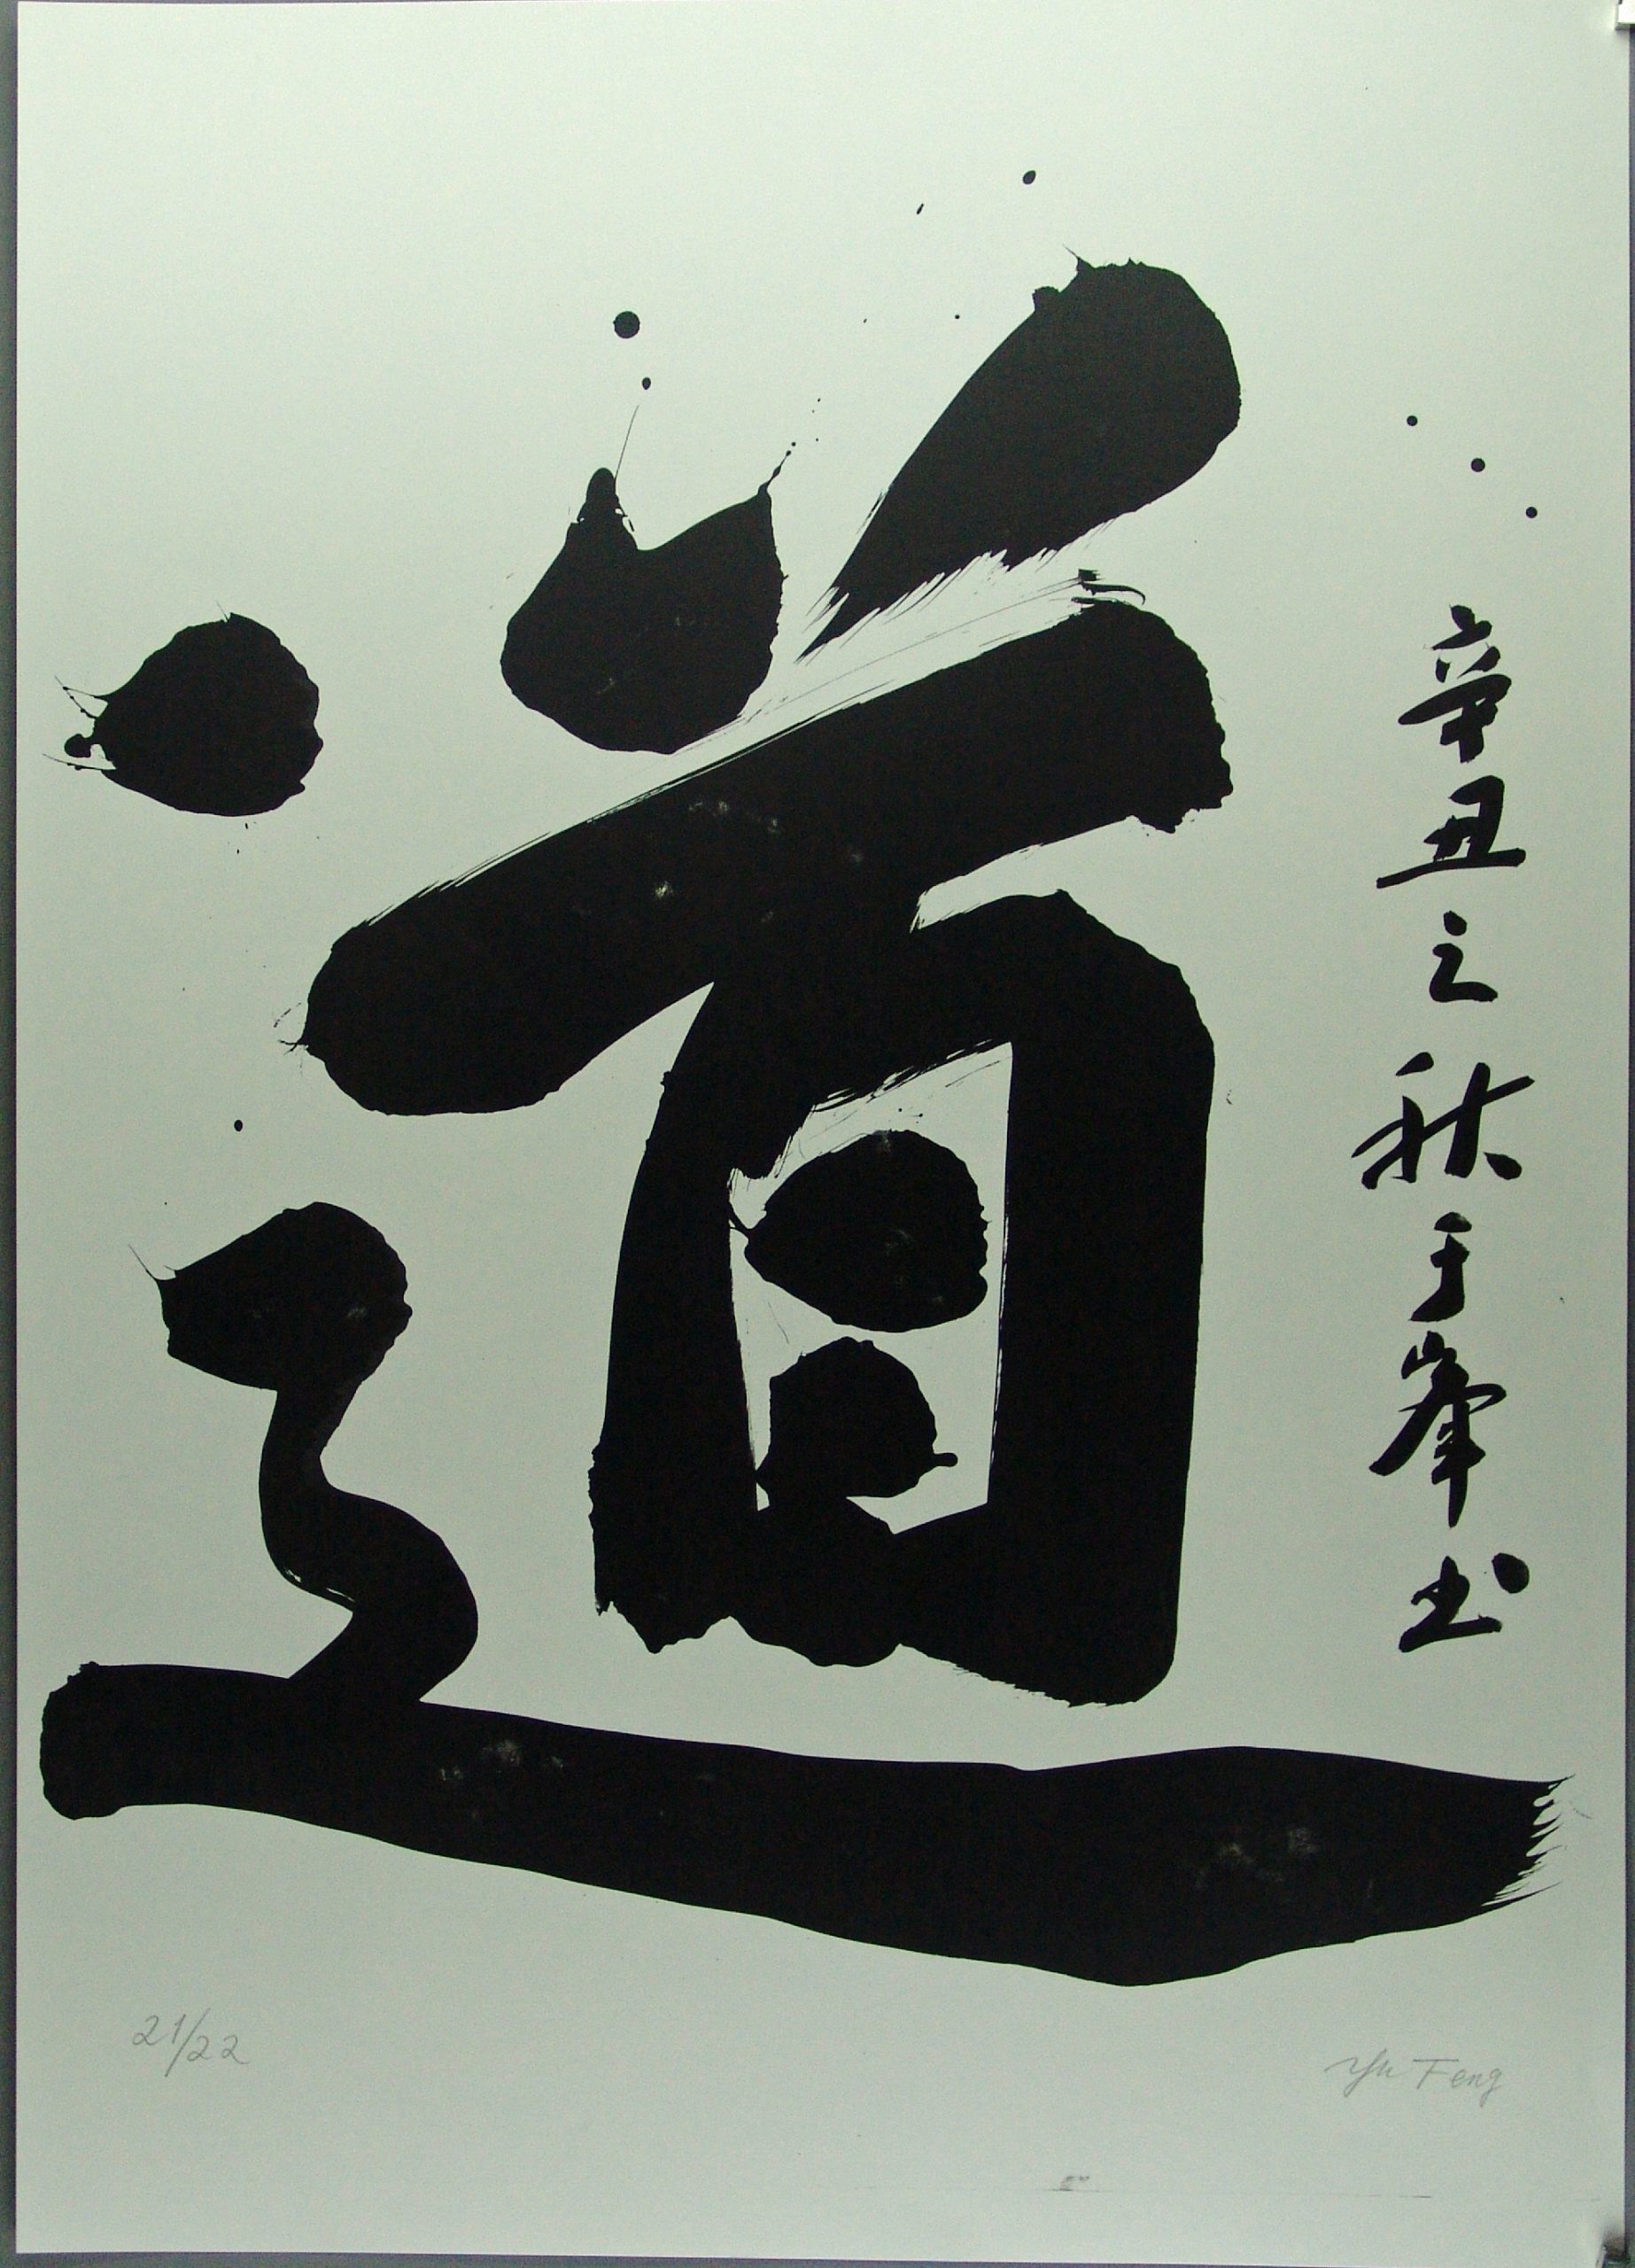 道
辛丑之秋于峯书
21/22
Yu Feng